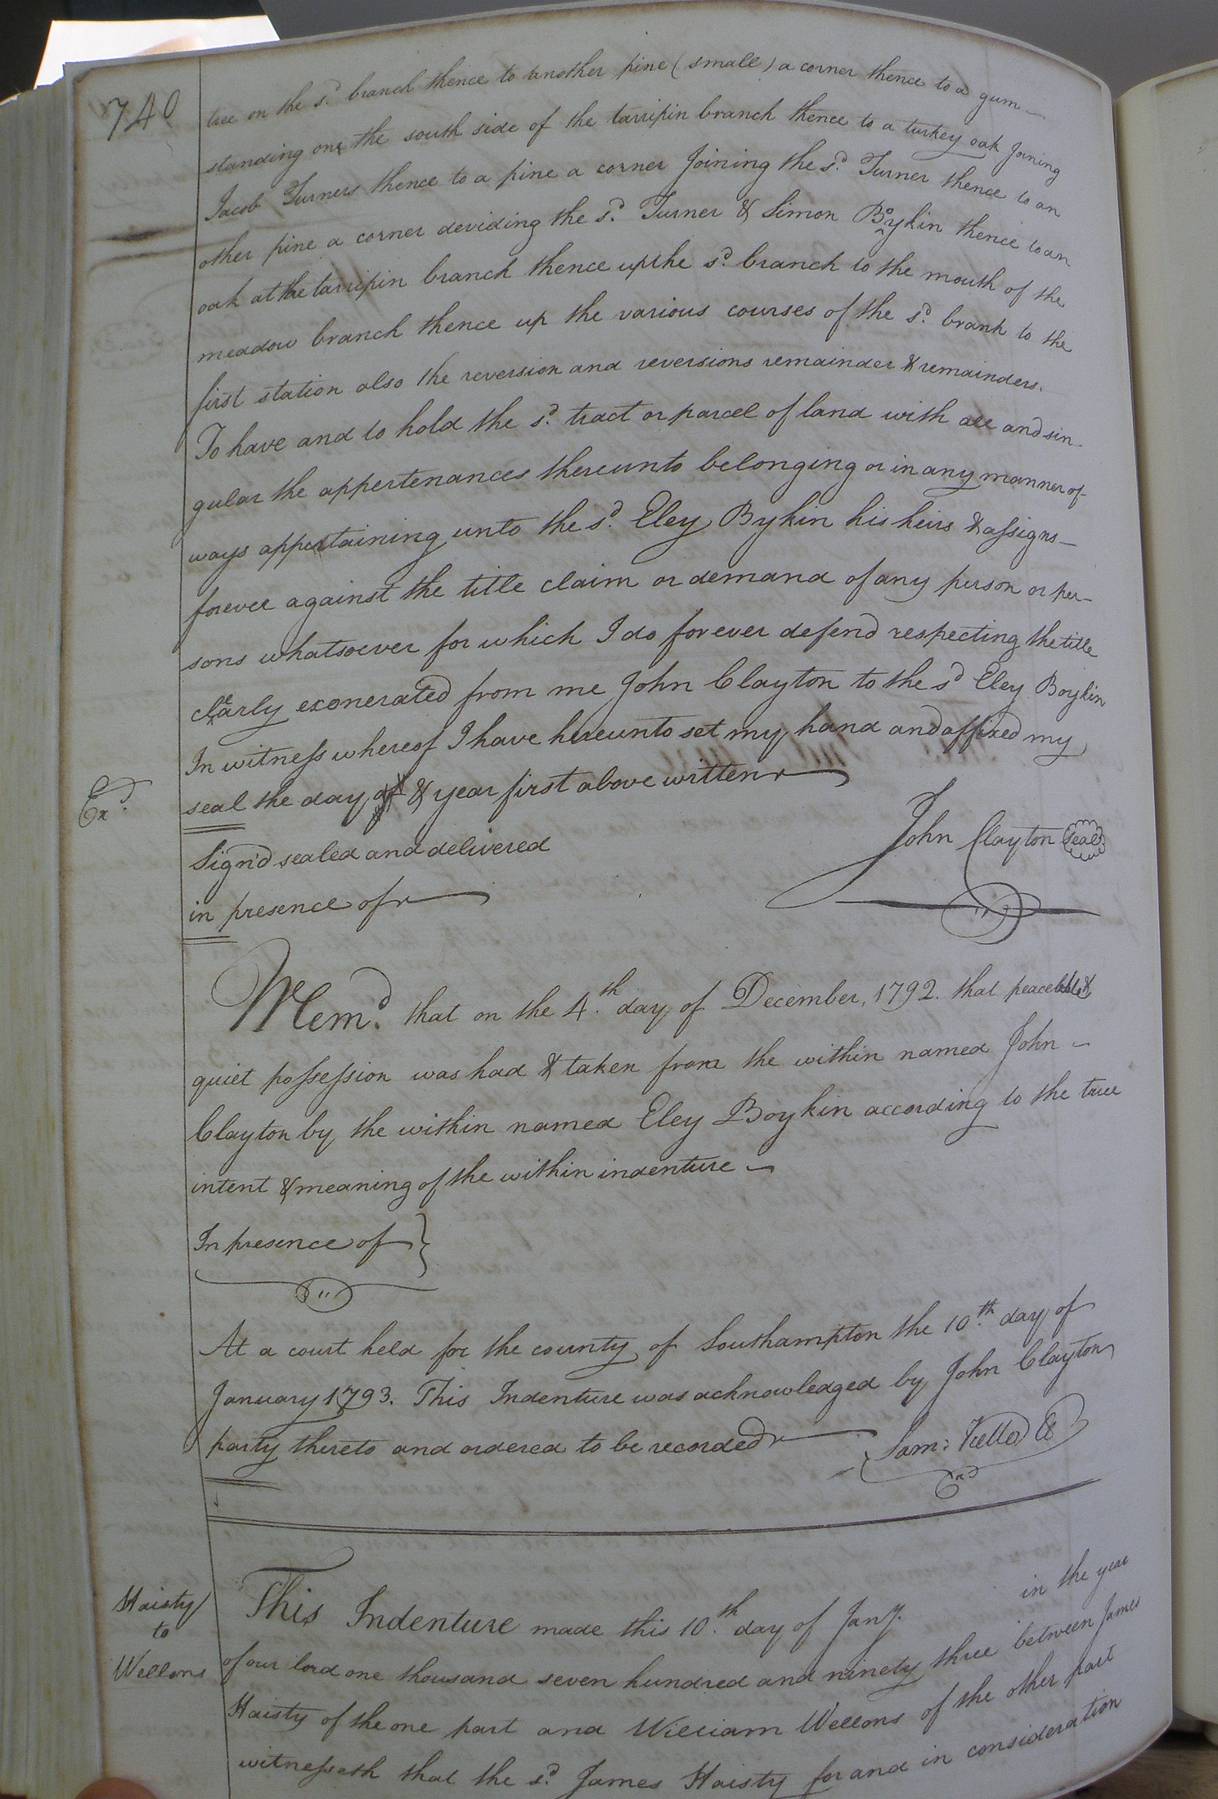 740
tree on the sd. branch thence to another pine (small) a corner thence to a gum
standing on the south side of the tarripin branch thence to a turkey oak Joining
Jacob Turners thence to a pine a corner Joining the sd. Turner thence to an
other pine a corner deviding the sd. Turner & Simon Boykin thence to an
oak at the tarripin branch thence up the sd. branch to the mouth of the
meadow branch thence up the various courses of the sd. brank to the
first station also the reversion and reversions remainder & remainders.
To have and to hold the sd. tract or parcel of land with all and sin-
gular the appertenances thereunto belonging or in any manner of
ways appertaining unto the sd. Eley Bykin his heirs & assigns
forever against the title claim or demand of any person or per-
sons whatsoever for which I do forever defend respecting the title
clearly exonerated from me John Clayton to the sd Eley Boykin
In witness whereof I have hereunto set my hand and affixed my
Exd.
seal the day & year first above written
Sign'd sealed and delivered
John Clayton Seal
in presence of
Memd. that on the 4th. day of December, 1792. that peaceble &
quiet possession was had & taken from the within named John
Clayton by the within named Eley Boykin according to the true
intent & meaning of the within indenture
In presence of }
At a court held for the county of Southampton the 10th. day of
January 1793. This Indenture was acknowledged by John Clayton
party thereto and ordered to be recorded
Sam: Kello
Exd
This Indenture made this 10th. day of Jany. in the year
Haisty
to
Wellons
of our lord one thousand seven hundred and ninety three between James
Haisty of the one part and William Wellons of the other part
witnesseth that the sd. James Haisty for and in consideration